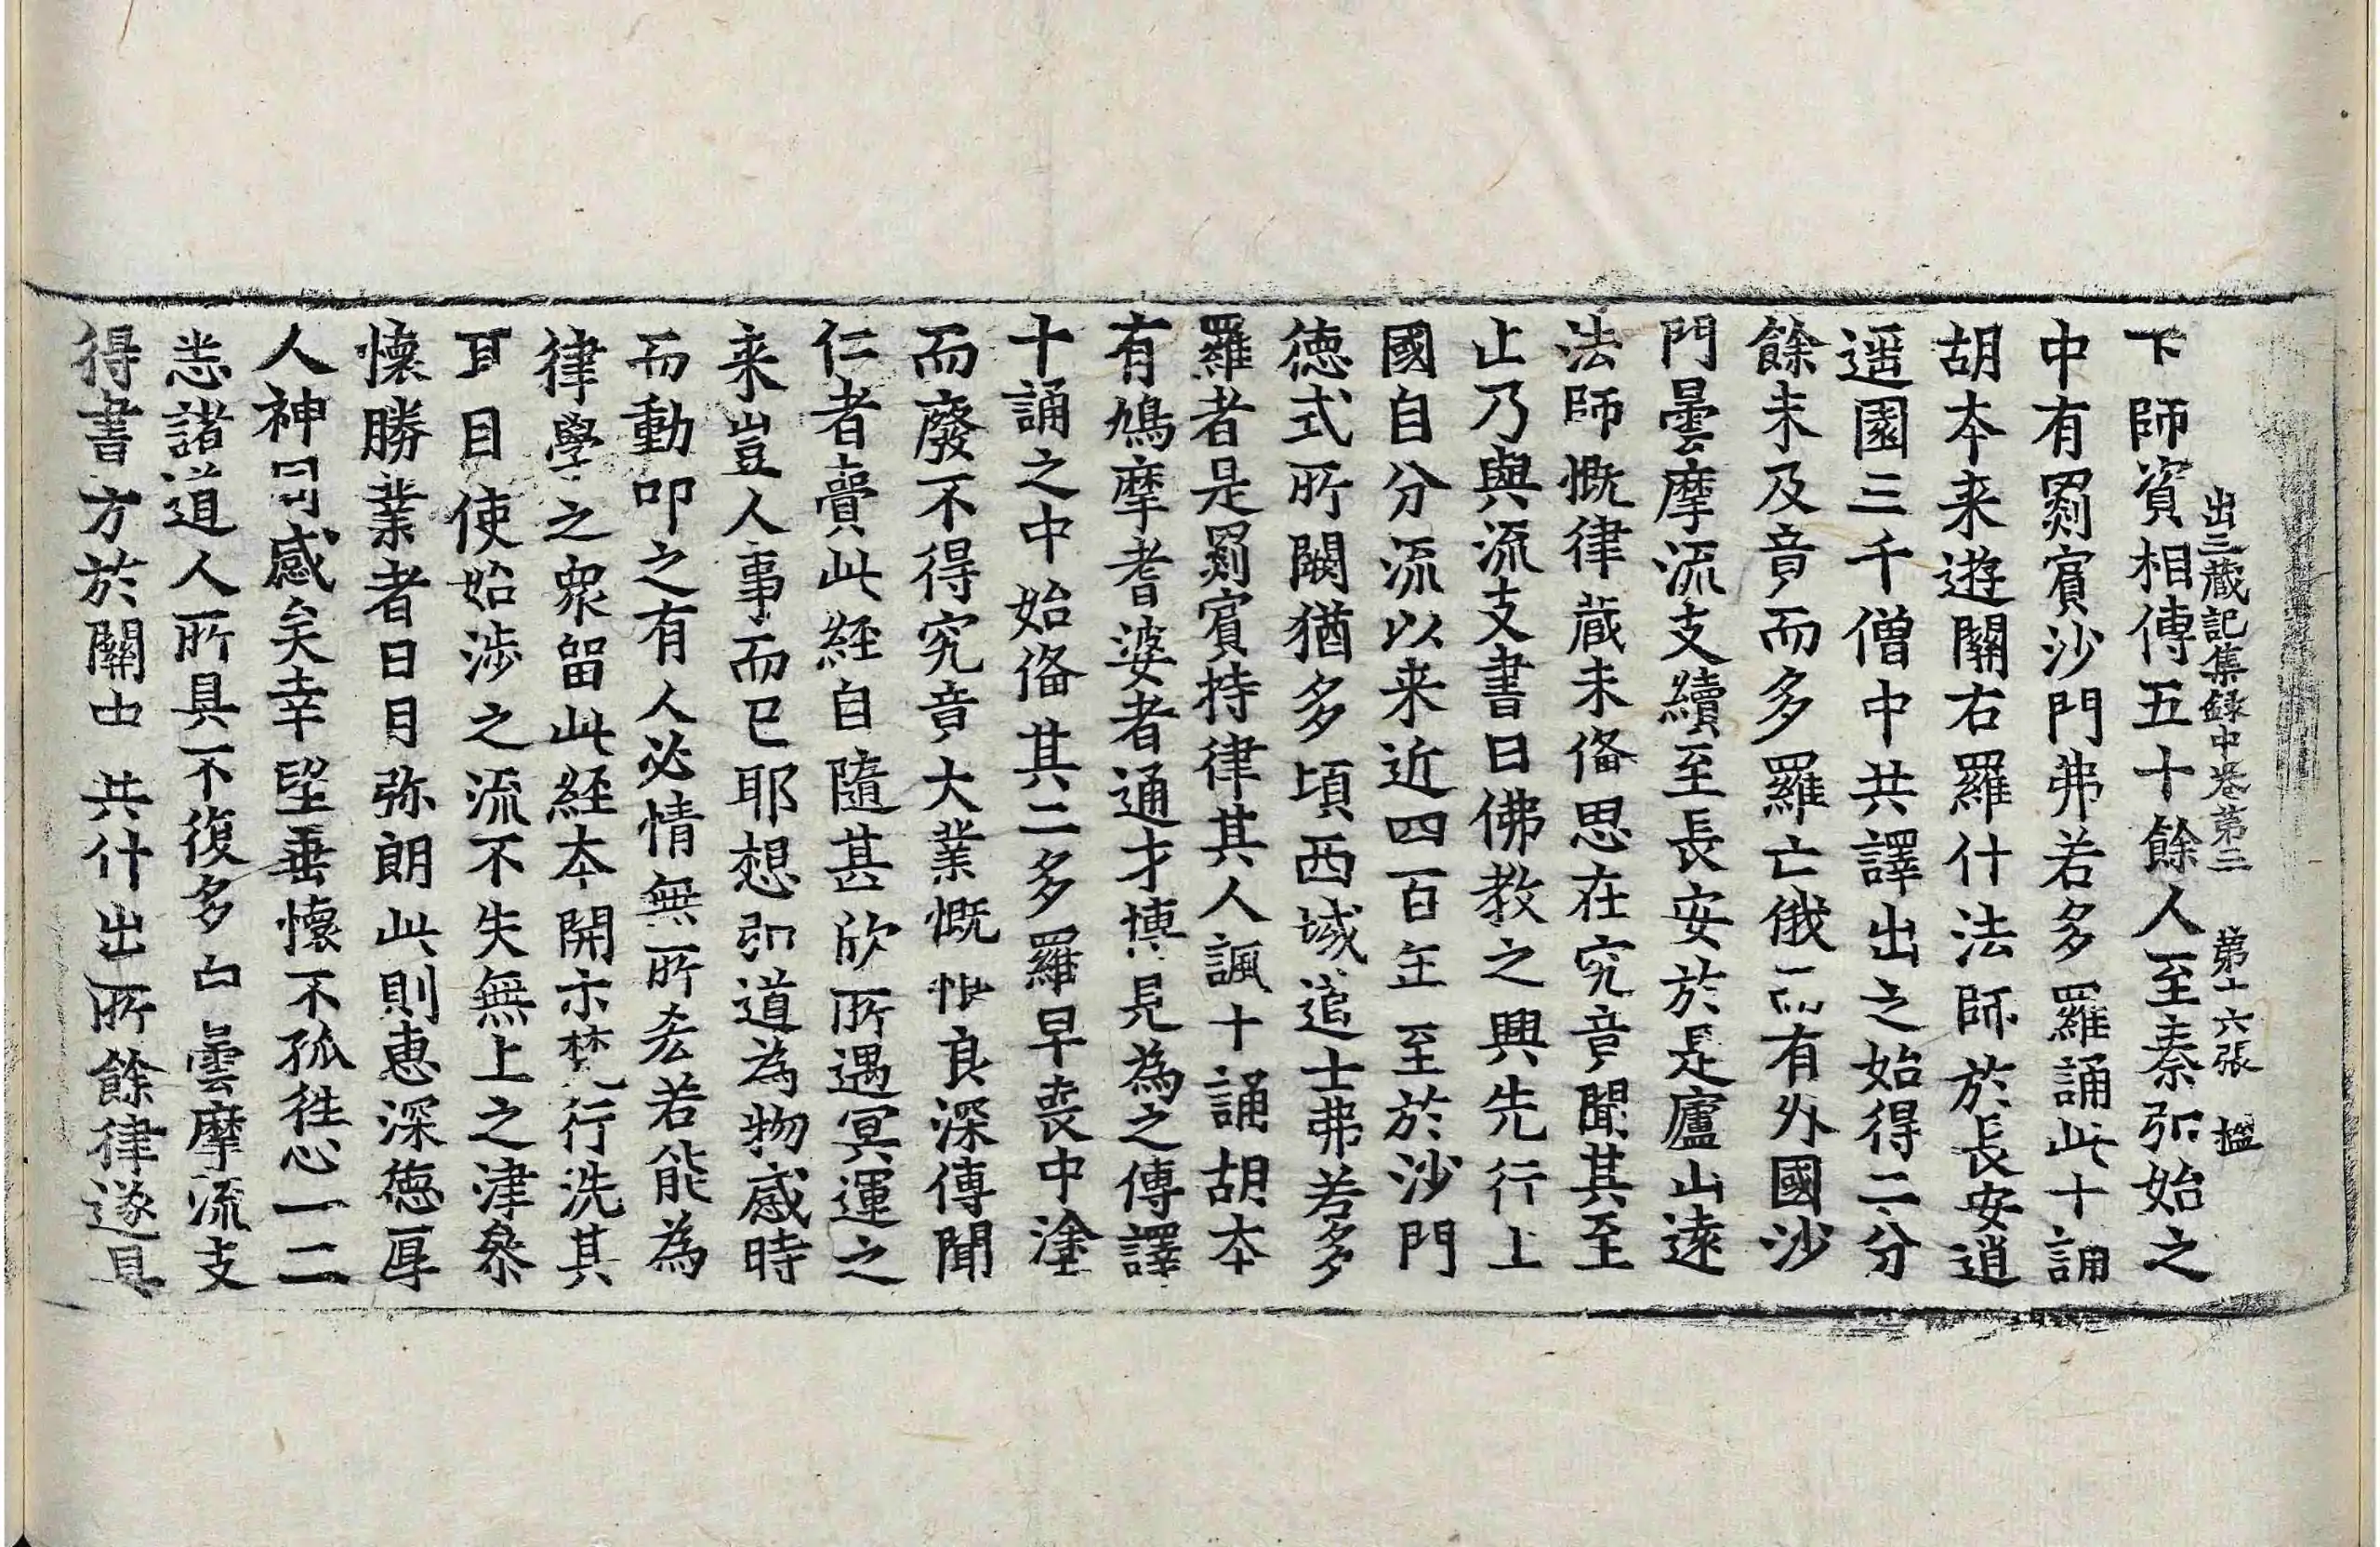 出三藏記集録中卷第三　第十六張　楹
下師資相傳五十餘人至秦弘始之
中有罽賓沙門弗若多羅誦此十誦
胡本来遊關右羅什法師於長安逍
遥園三千僧中共譯出之始得二分
餘未及竟而多羅亡俄而有外國沙
門曇摩流支續至長安於是廬山遠
法師慨律藏未俻思在究竟聞其至
止乃與流支書曰佛教之興先行上
國自分流以来近四百年至於沙門
徳式所闕猶多頃西域道士弗若多
羅者是罽賓持律其人諷十誦胡本
有鳩摩耆婆者通才博見為之傳譯
十誦之中始俻其二多羅早喪中塗
而廢不得究竟大業慨恨良深傳聞
仁者賷此經自隨甚欣所遇冥運之
来豈人事而已耶想弘道為物感時
而動叩之有人必情無所𠫤若能為
律學之衆留此經本開示梵行洗其
耳目使始涉之流不失無上之津叅
懷勝業者日月弥朗此則恵深徳厚
人神同感矣幸望垂懷不孤徃心一二
悉諸道人所具不復多白曇摩流支
得書方於關中共什出所餘律遂具